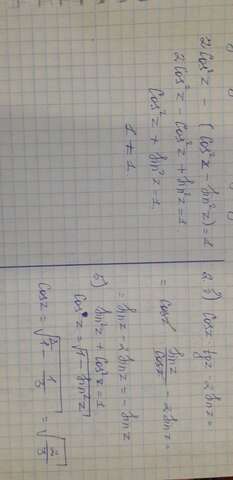 2cos²z - (cos²x - sin²z) = 1
2cos²z - cos²z + sin²z = 1
cos²z + sin²z = 1
1 = 1
2 б) cosz · tgz - 2sinz =
= cosz · sinz/cosz - 2sinz =
= sinz - 2sinz = - sinz
б) sin²z + cos²z = 1
cos z = √1 - sin²z
cosz = √1 - 1/3 = √2/3